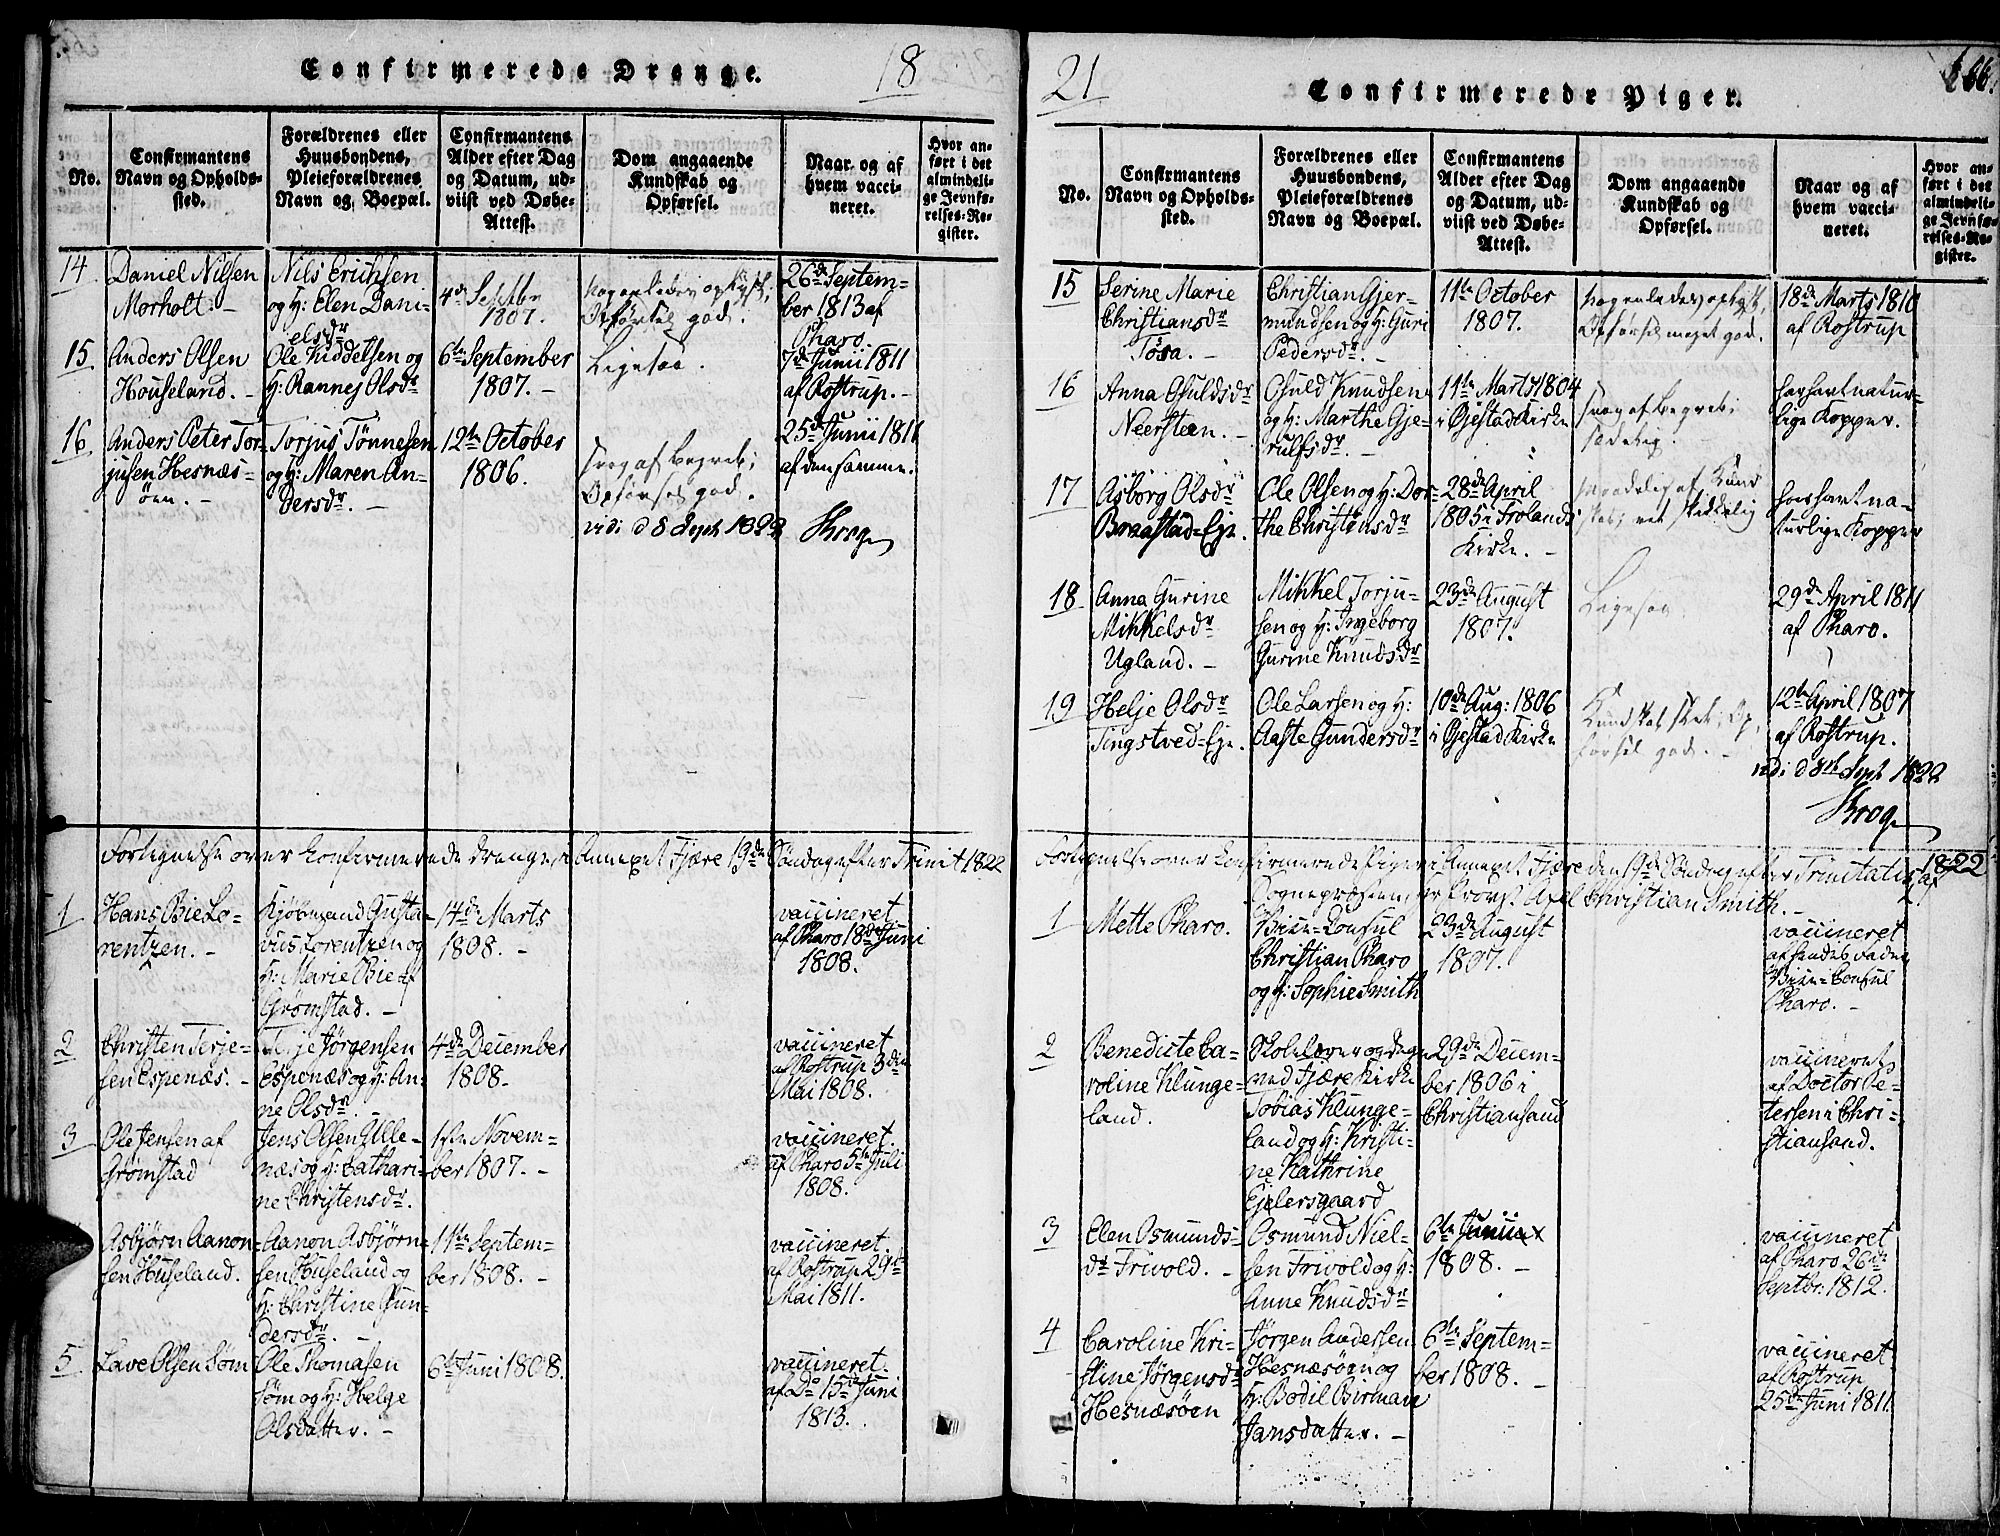 Confirmerede Drenge.
18
No.
Confirmantens
Navn og Opholds-
sted.
Forældrenes eller
Huusbondens,
Pleieforældrenes
Navn og Boepæl.
Confirmantens
Alder efter Dag
og Datum, ud-
viist ved Døbe-
Attest.
Dom angaaende
Kundskab og
Opførsel.
Naar og af
hvem vacci-
neret.
Hvor an-
ført i det
almindeli-
ge Jevnfø-
relses-Re-
gister.
14
Daniel Nilsen
Morholt. -
Nils Erichsen
og H: Elen Dani-
elsdr
4de Septbr
1807.
Opførsel god.
26de Septem-
ber 1813 af
Pharo.
15
Anders Olsen
Houseland. -
Ole Kiddelsen og
H: Rannej Olsdr
6te September
1807. -
Ligesaa.
7de Junii 1811
af Rostrup. -
16
Anders Peter Tor-
jusen Hesnæs-
öen. -
Torjus Tönnesen
og H: Maren An-
dersdr. -
12te October
1806.
svag af Begreb;
Opførsel god.
vidi d 8 Sept 1822
25de Junii 1811
af den samme.
Krog
Fortegnelse over Confirmerede Drenge i Annexet Fjære 19de Söndag efter Trinit 1822
1
Hans Bie Lo-
rentzen. -
Kjöbmand Gusta-
vus Lorentzen og
H: Marie Bie af
Grömstad. -
14de Marts
1808. -
vaccineret
af Pharo 18de Juni
1808.
2
Christen Terje-
sen Espenæs. -
Terje Jörgensen
Espenæs og H: An-
ne Olsdr. -
4de December
1808. -
vaccineret
af Rostrup 3die
Mai 1808.
3
Ole Jensen af
Grömstad
Jens Olsen Ulle-
næs og H: Cathari-
ne Christensdr.
1ste Novem-
ber 1807. -
vaccineret.
af Pharo 5te Juli
1808.
Asbjørn Aanon-
sen Huseland.
Aanon Asbjørn-
sen Huseland og
H: Christine Gun-
dersdr. -
11te Septem-
ber 1808. -
vaccineret.
af Rostrup 29de
Mai 1811.
5
Lave Olsen Söm
Ole Thomasen
Söm og H: Helge
Olsdatter. -
6te Juni 1808.
vaccineret.
af Do 15de Juni
1813.
21
Confirmerede Piger.
166.
No.
Confirmantens
Navn og Opholds-
sted.
Forældrenes eller
Huusbondens,
Pleieforældrenes
Navn og Boepæl.
Confirmantens
Alder efter Dag
og Datum, ud-
viist ved Døbe-
Attest.
Dom angaaende
Kundskab og
Opførsel.
Naar og af
hvem vacci-
neret.
Hvor an-
ført i det
almindeli-
ge Jevnfø-
relses-Re-
gister.
15
Serine Marie
Christiansdr
Tösa. -
Christian Gjer-
mundsen og H: Guri
Pedersdr. -
11te October
1807.
Opførsel meget god.
18de Marts 1810
af Rostrup
16
Anna Osuldsdr
Neersteen. -
Osuld Knudsen
og H: Marthe Gje-
rulfsdr. -
11te Marts 1804
i Øjestad Kirke
svag af Begreb;
sædelig.
har havt natur-
lige Kopper.
17
Asborg Olsdr
Braastad-Eje.
Ole Olsen og H: Dor-
the Christensdr
28de April
1805 i Frolands
Kirke. -
maadelig af Kund
skab, ret skikkelig
har havt na-
turlige Kopper
18
Anna Gurine
Mikkelsdr
Ugland. -
Mikkel Torju-
sen og H: Ingeborg
Gurine Knudsdr
23de August
1807.
Ligesaa
29de April 1811
af Pharo.
19
Helje Olsdr
Tingstved-Eje.
Ole Larsen og H:
Aaste Gundersdr
10de Aug: 1806
i Øjestad Kirke
Kundskab slet; Op-
førsel god. -
12te April 1807
af Rostrup.
vidi d 8de Sept 1822
Krog
Fortegnelse over Confirmerede Piger i Annexet Fjære den 19de Söndag efter Trinitatis 1822 af
Sognepræsten, Hr Provst Axel Christian Smith. -
1
Mette Pharo.
Vice-Consul
Christian Pharo
og H: Sophie Smith
23de August
1807.
vaccineret
af hendes Fader
Vice-Consul
Pharo. -
2
Benedicte Ca-
roline Klunge-
land.
Skolelærer og Degn
ved Fjære Kirke
Tobias Klunge-
land og H: Kristi-
ne Kathrine
Ejelersgaard
29de Decem-
ber 1806 i
Christiansand
vaccineret
af Doctor Pe-
tersen i Chri-
stiansand.
3
Elen Osmunds-
dr Frivold. -
Osmund Niel-
sen Frivold og H:
Anne Knudsdr
6te Junii
1808. -
vaccineret
af Pharo 26de
Septbr: 1812.
4
Caroline Kri-
stine Jörgensdr
Hesnæsöen
Jörgen Andersen
Hesnæsöen og
H: Bodil Birman
Jansdatter. -
6te Septem-
ber 1808. -
vaccineret
af Rostrup
25de Juni 1811